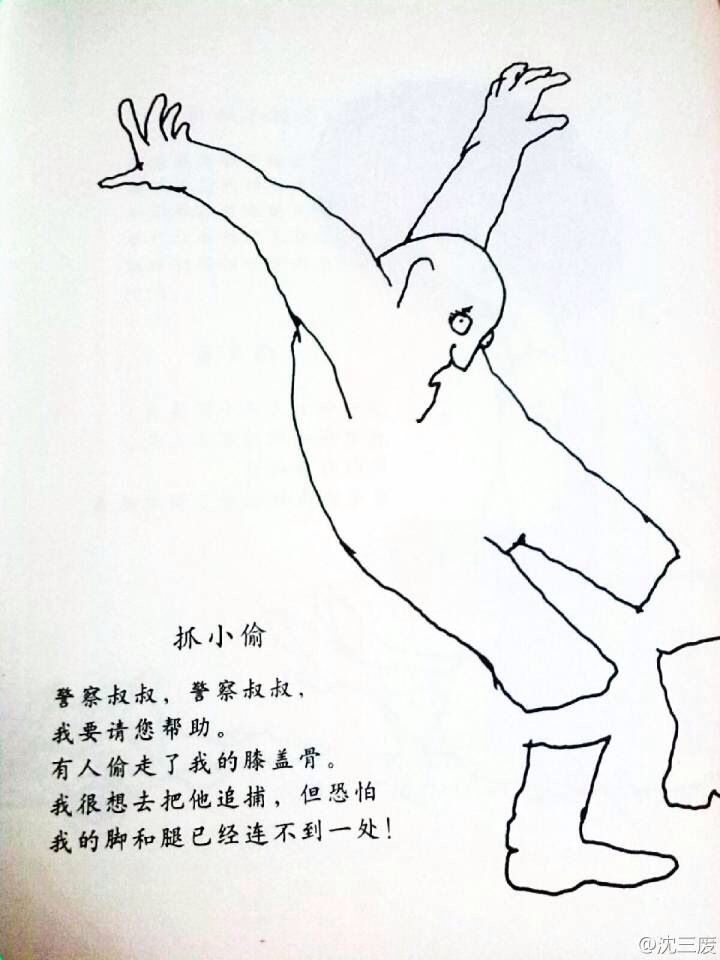 抓小偷
警察叔叔，警察叔叔，
我要请您帮助。
有人偷走了我的膝盖骨。
我很想去把他追捕，但恐怕
我的脚和腿已经连不到一处！
@沈三废